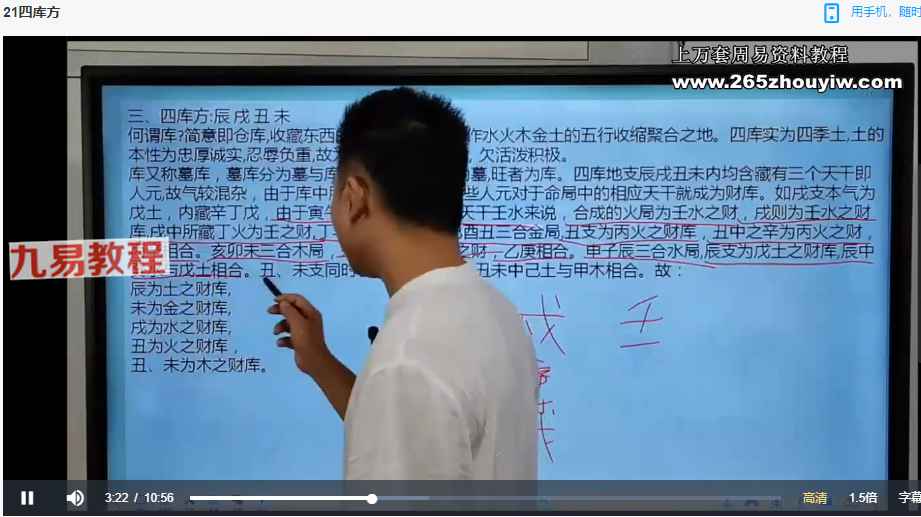 21四库方
用手机，随时
上万套周易资料教程
www.265zhouyiw.com
三、四库方:辰 戌 丑 未
何谓库?简意即仓库,收藏东西的 作水火木金土的五行收缩聚合之地。四库实为四季土,土的
本性为忠厚诚实,忍辱负重,故 ,欠活泼积极。
库又称墓库，墓库分为墓与库 为墓,旺者为库。四库地支辰戌丑未内均含藏有三个天干即
人元,故气较混杂，由于库中 些人元对于命局中的相应天干就成为财库。如戌支本气为
戊土，内藏辛丁戊，由于寅 天干壬水来说，合成的火局为壬水之财，戌则为壬水之财
库,戌中所藏丁火为壬之财,丁 酉丑三合金局,丑支为丙火之财库，丑中之辛为丙火之财，
相合。亥卯未三合木局， 之财,乙庚相合。申子辰三合水局,辰支为戊土之财库,辰中
戊土相合。丑、未支同 丑未中己土与甲木相合。故：
九易教程
辰为土之财库,
未为金之财库,
戌为水之财库,
丑为火之财库，
丑、未为木之财库。
戌 壬
3:22 / 10:56
高清
1.5倍
字幕